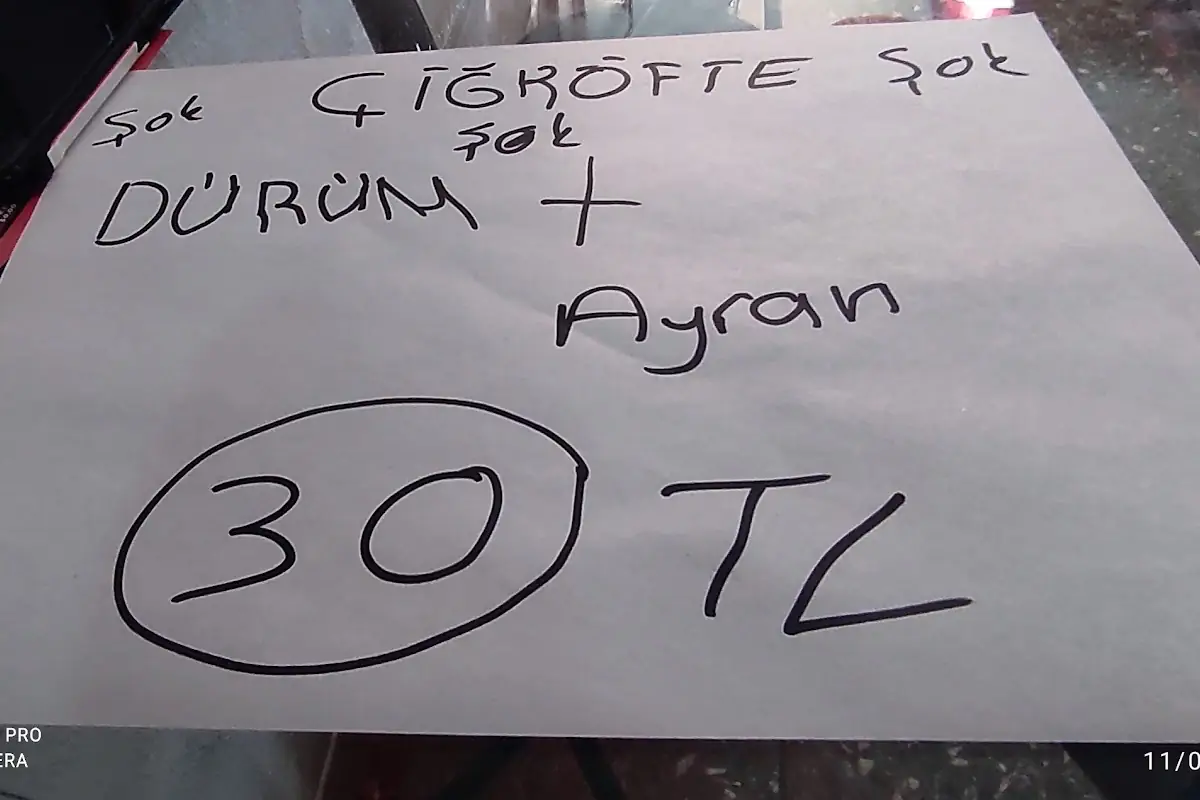 Şok ÇİĞKÖFTE Şok
Şok
DÜRÜM +
Ayran
30 TL
PRO
ERA
11/0